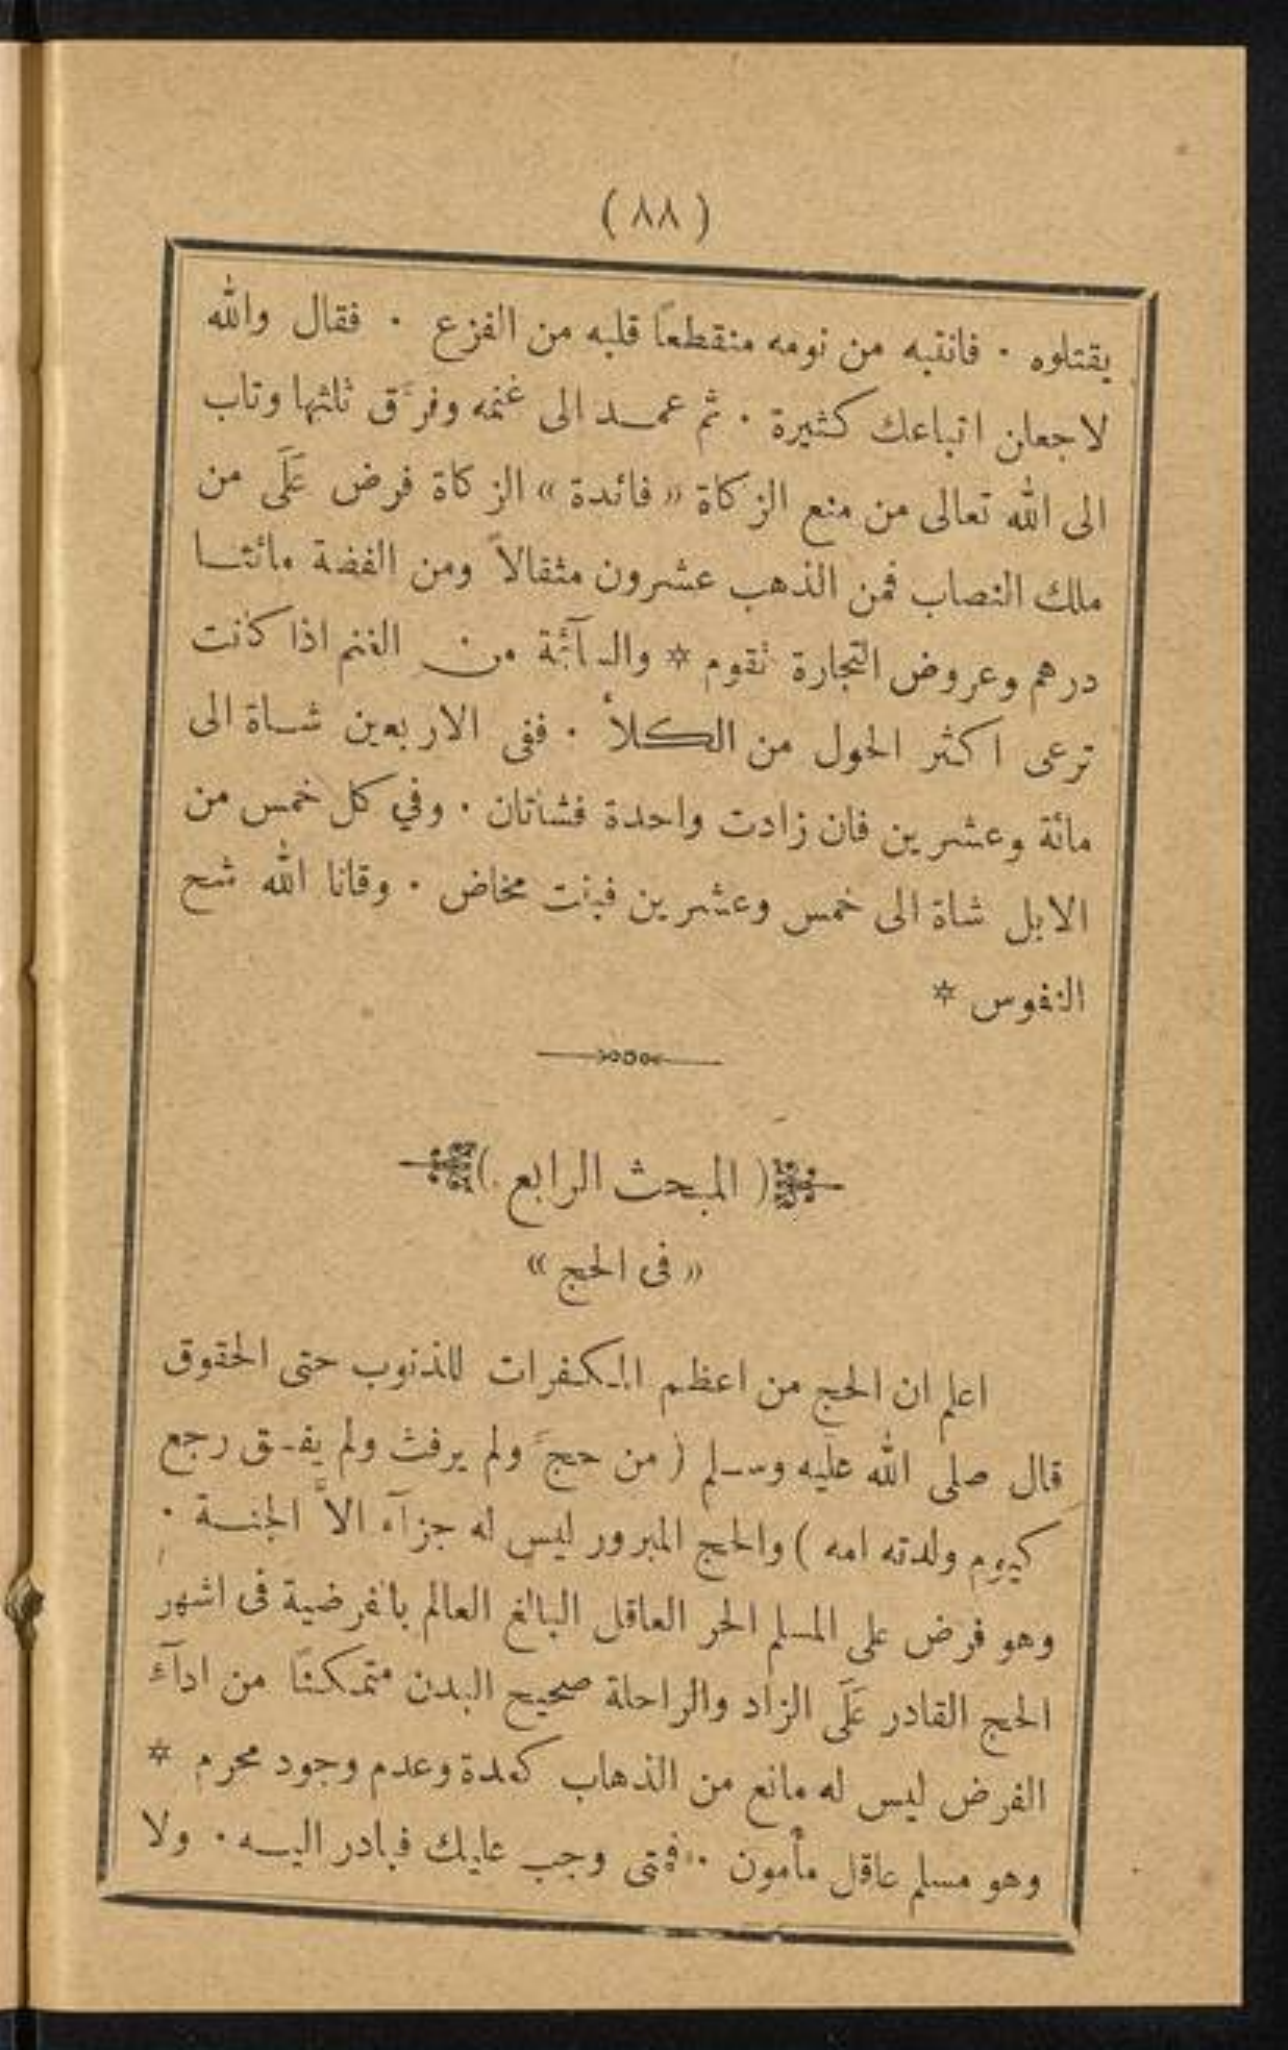 ( ٨٨ )
يقتلوه ٠ فانتبه من نومه منقطعاً قلبه من الفزع ٠ فقال والله
لاجعلن اتباعك كثيرة ٠ ثم عمد الى غنمه وفرَّق ثلثها وتاب
الى الله تعالى من منع الزكاة « فائدة » الزكاة فرض عَلَى من
ملك النصاب فمن الذهب عشرون مثقالاً ومن الفضة مائتا
درهم وعروض التجارة تقوم * والسآئمة من الغنم اذا كانت
ترعى اكثر الحول من الكلأ ٠ ففى الاربعين شاة الى
مائة وعشرين فان زادت واحدة فشاتان ٠ وفي كل خمس من
الابل شاة الى خمس وعشرين فبنت مخاض ٠ وقانا الله شح
النفوس *
( المبحث الرابع )
« فى الحج »
اعلم ان الحج من اعظم المكفرات للذنوب حتى الحقوق
قال صلى الله عليه وسلم ( من حجَّ ولم يرفث ولم يفسق رجع
كيوم ولدته امه ) والحج المبرور ليس له جزآء الاَّ الجنة ٠
وهو فرض على المسلم الحر العاقل البالغ العالم بالفرضية فى اشهر
الحج القادر عَلَى الزاد والراحلة صحيح البدن متمكنًا من ادآء
الفرض ليس له مانع من الذهاب كعدة وعدم وجود محرم *
وهو مسلم عاقل مأمون ٠ فمتى وجب عليك فبادر اليه ٠ ولا